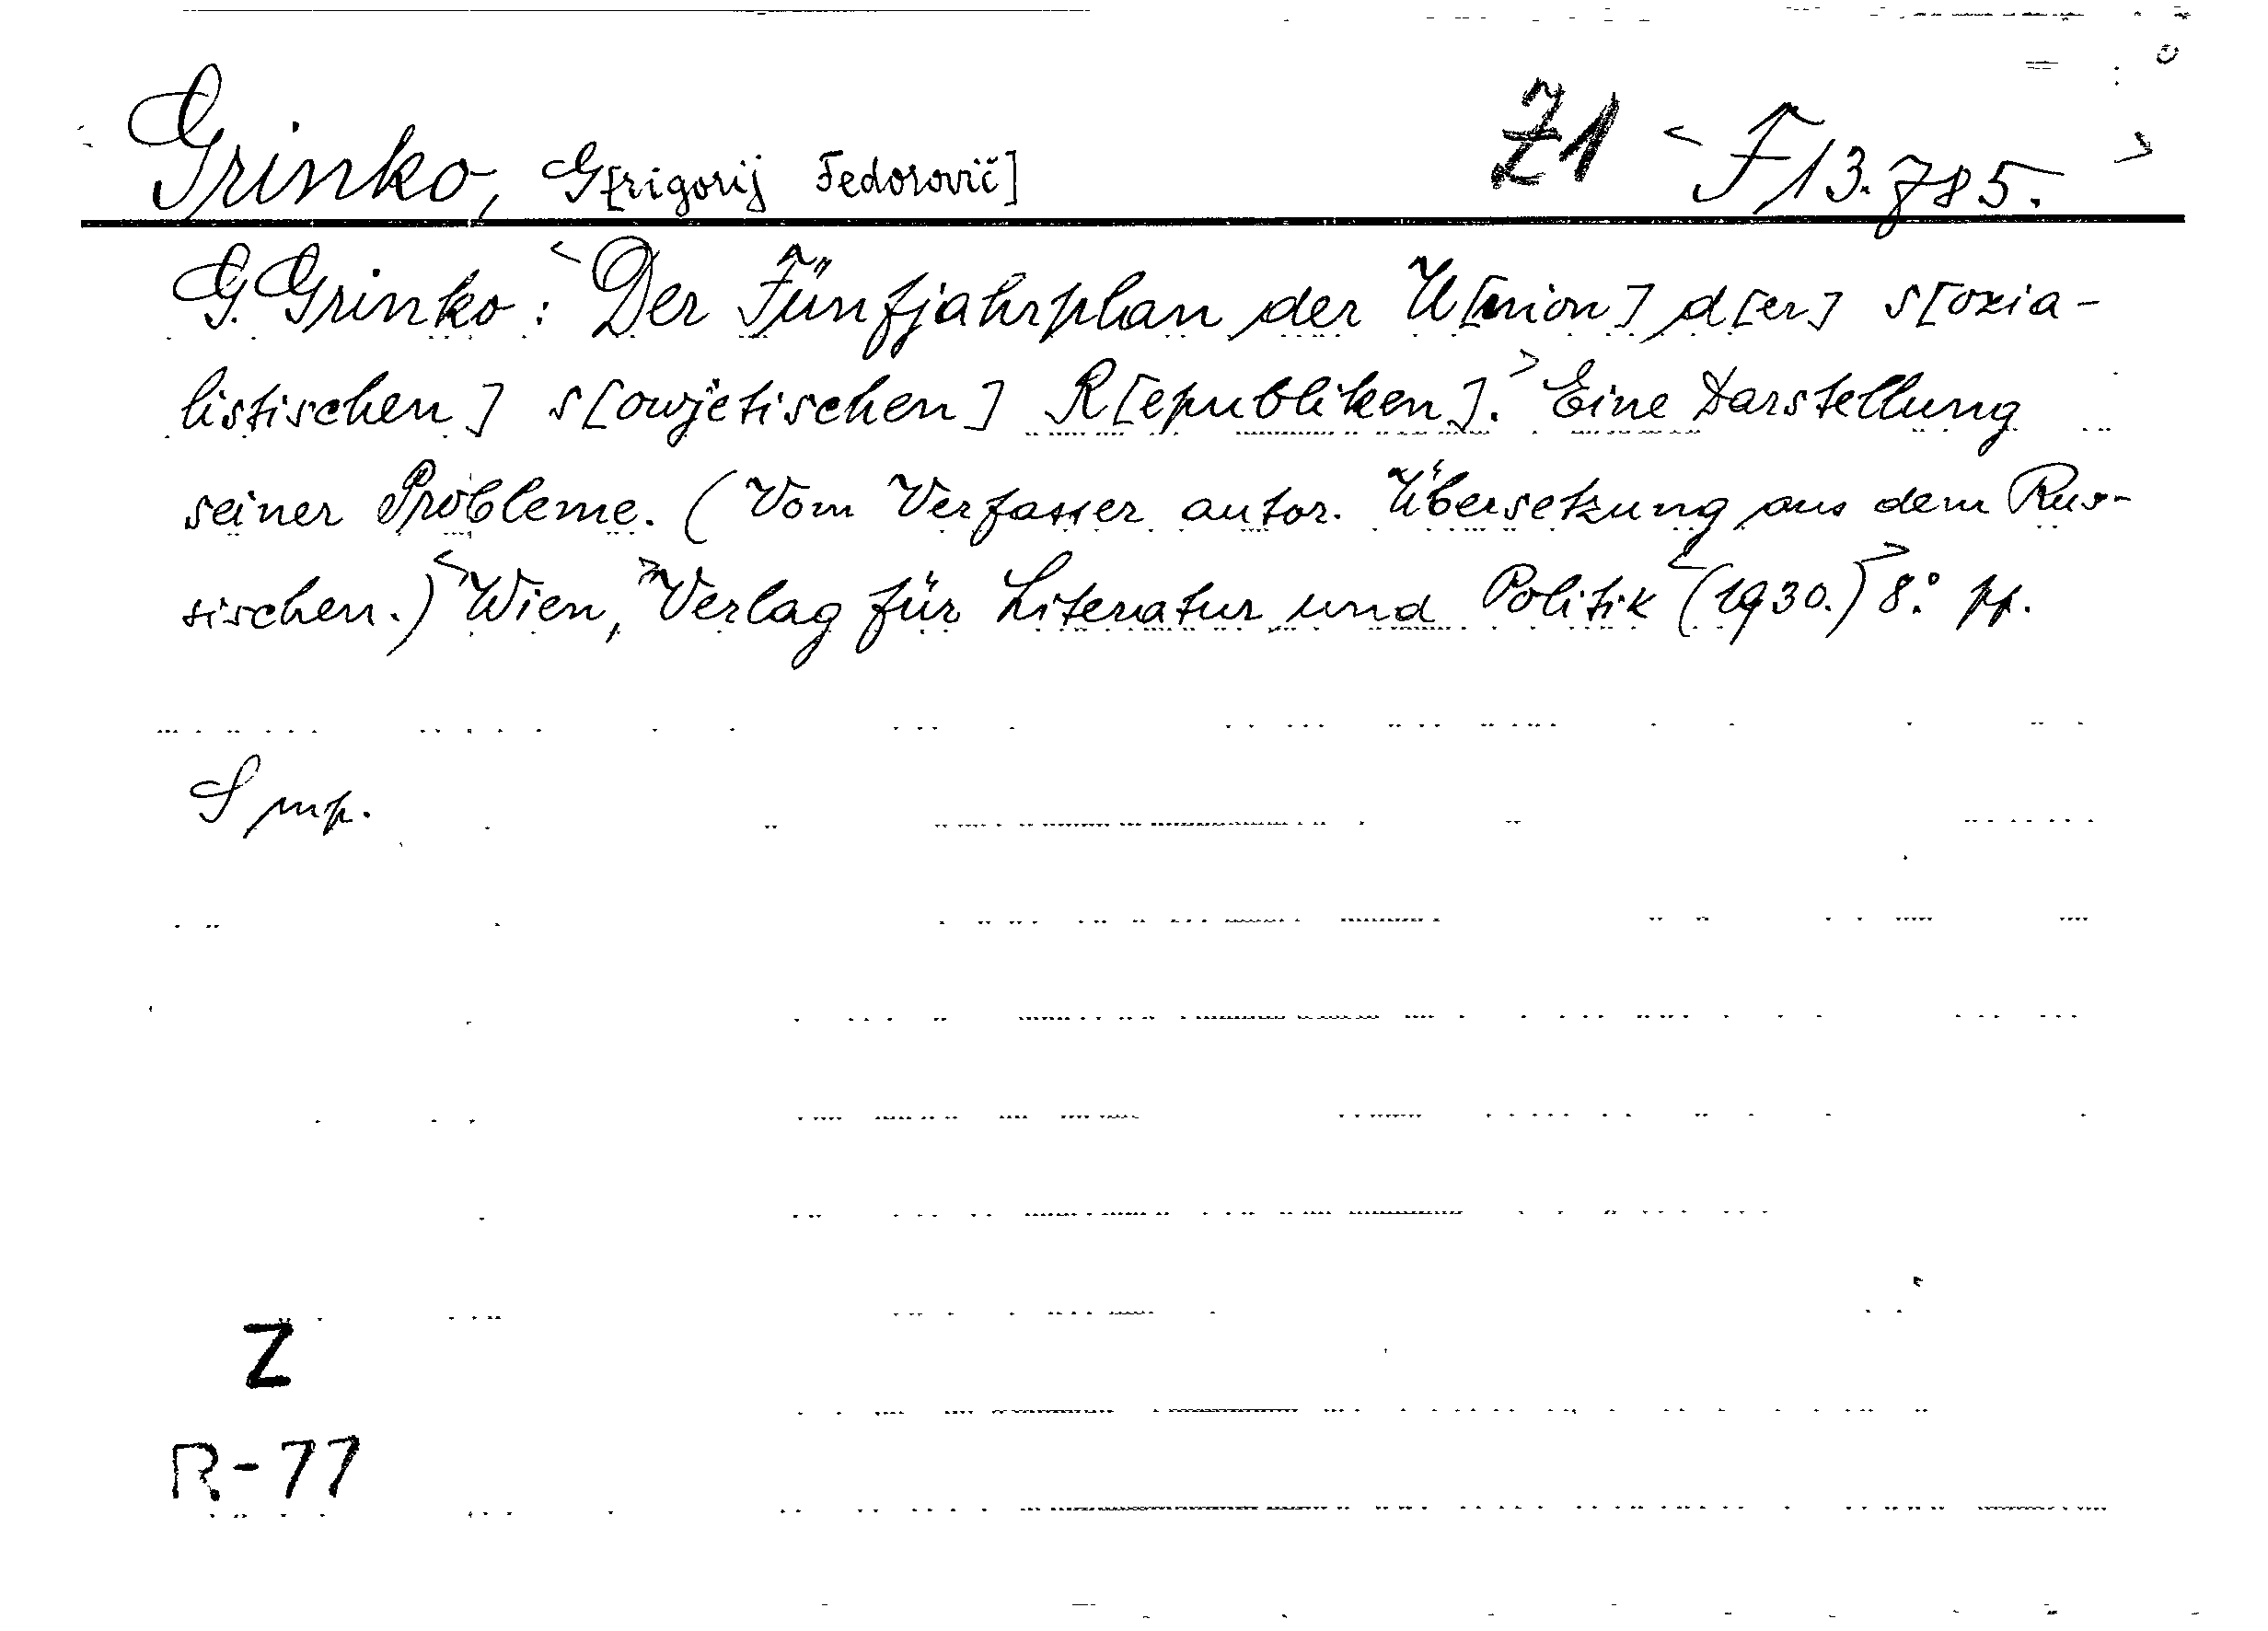 Grinko, G[rigorij Fedorovič] Z1 <F13.785.>
G. Grinko: <Der Fünfjahrplan der U[nion] d[er] s[ozia-
listischen] s[owjetischen] R[epubliken].> Eine Darstellung
seiner Probleme. (Vom Verfasser autor. Übersetzung aus dem Rus-
sischen.) <Wien,> Verlag für Literatur und Politik <(1930.)> 8.°
S
Z
R-77